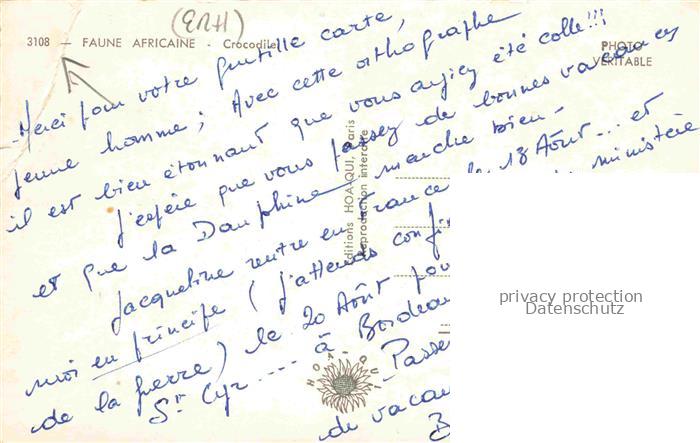 (ERH)
3108 — FAUNE AFRICAINE - Crocodile
PHOTO
VÉRITABLE
Merci pour votre gentille carte,
jeune homme ; Avec cette orthographe
il est bien étonnant que vous ayiez été collé !!!
J'espère que vous passez de bonnes vacances
et que la Dauphine marche bien -
Jacqueline rentre en France le 18 Août ... et
moi en principe ( j'attends du ministère
de la guerre ) le 20 Août pour
St Cyr .... à Bordeaux
Passe
de vacan
B
Editions HOA-QUI, Paris
Reproduction interdite
HOA-QUI
privacy protection
Datenschutz